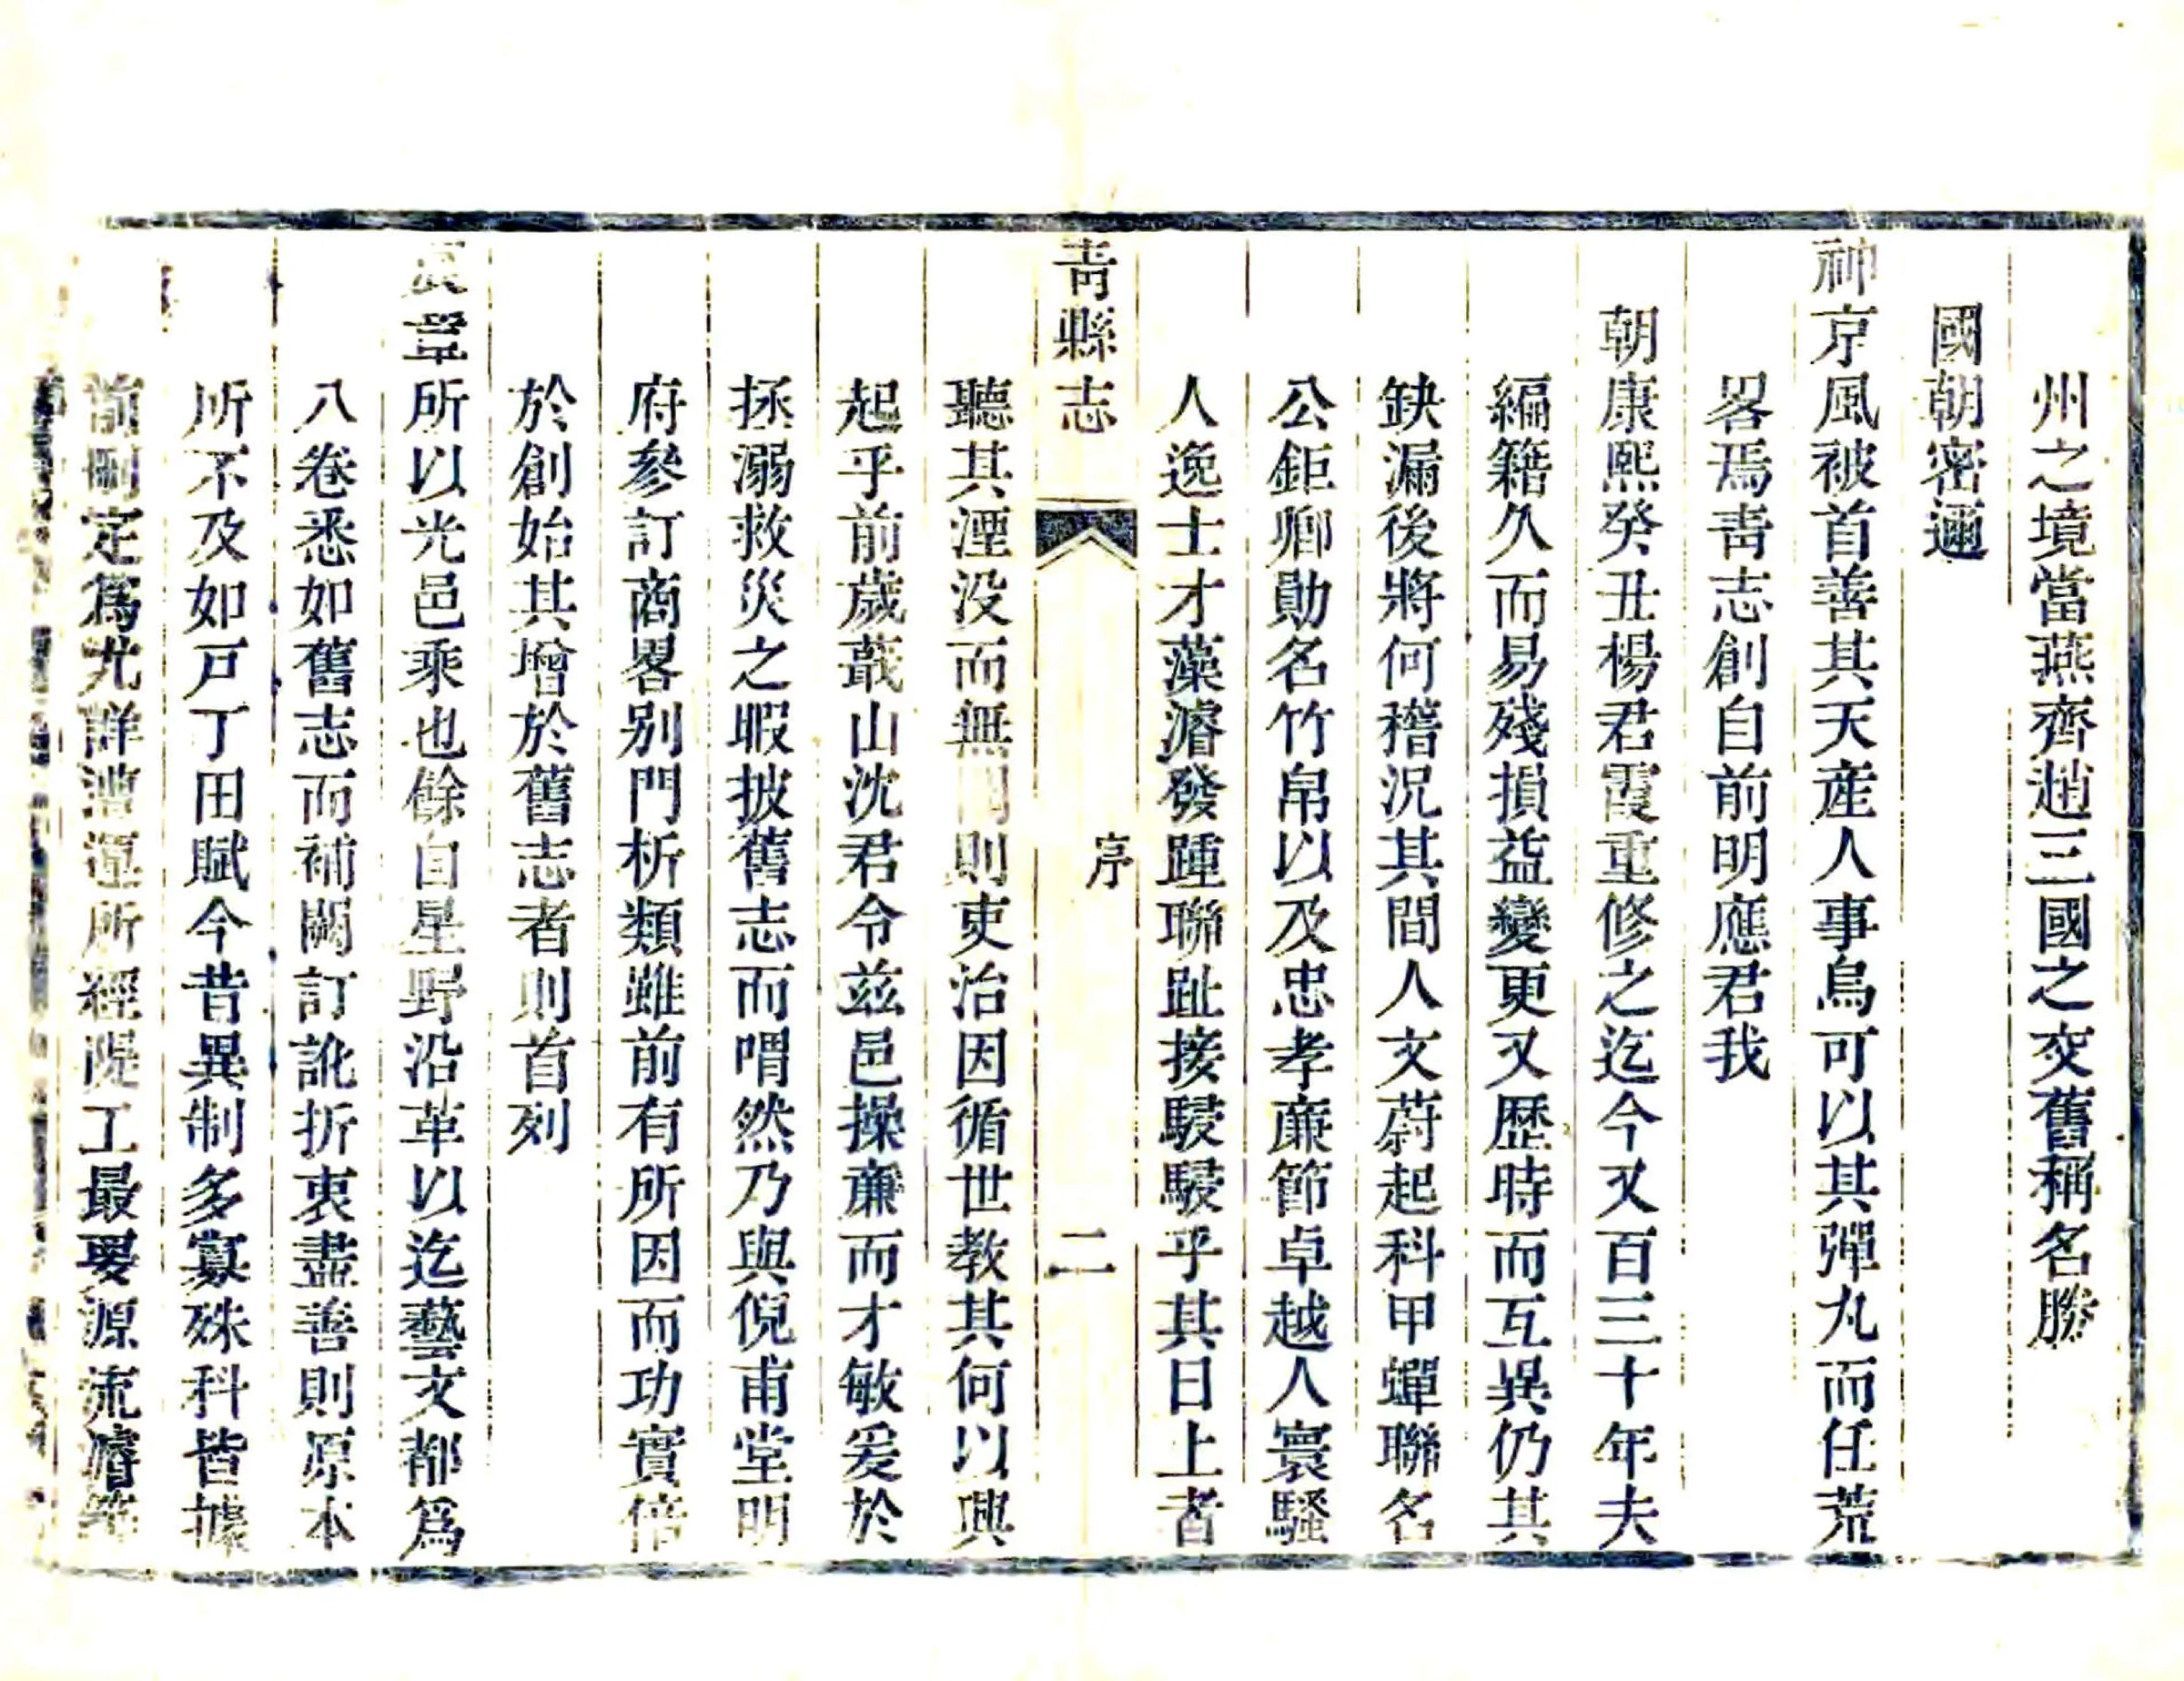 州之境當燕齊趙三國之交舊稱名勝
國朝密邇
神京風被首善其天産人事烏可以其彈丸而任荒
畧焉青志創自前明應君我
朝康熙癸丑楊君霞重修之迄今又百三十年夫
編籍久而易殘損益變更又歷時而互異仍其
缺漏後將何稽況其間人文蔚起科甲蟬聯名
公鉅卿勛名竹帛以及忠孝亷節卓越人寰騷
人逸士才藻濬發踵聯趾接駸駸乎其日上者
青縣志
序
二
聽其湮没而無則吏治因循世教其何以興
起乎前歲蕺山沈君令兹邑操亷而才敏爰於
拯溺救災之暇披舊志而喟然乃與倪甫堂明
府參訂商畧别門析類雖前有所因而功實倍
於創始其增於舊志者則首列
宸章所以光邑乘也餘自星野沿革以迄藝文都爲
八卷悉如舊志而補闕訂訛折衷盡善則原本
所不及如戸丁田賦今昔異制多寡殊科皆據
前刪定爲尤詳漕運所經隄工最要源流濬築